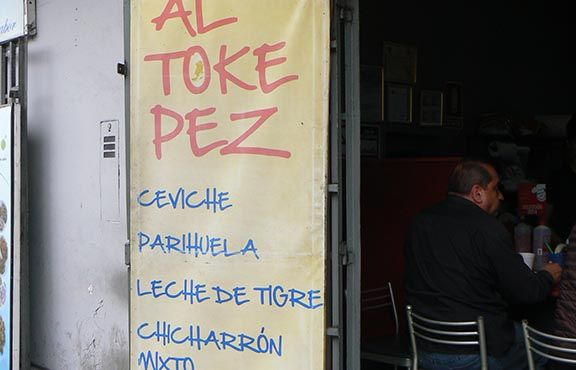 AL
TOKE
PEZ
CEVICHE
PARIHUELA
LECHE DE TIGRE
CHICHARRÓN
MIXTO